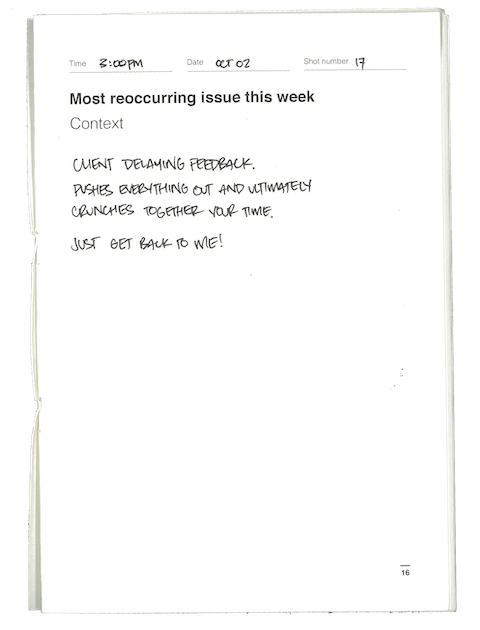 Time 3:00PM Date OCT 02 Shot number 17
Most reoccurring issue this week
Context
CLIENT DELAYING FEEDBACK.
PUSHES EVERYTHING OUT AND ULTIMATELY
CRUNCHES TOGETHER YOUR TIME.
JUST GET BACK TO ME!
16